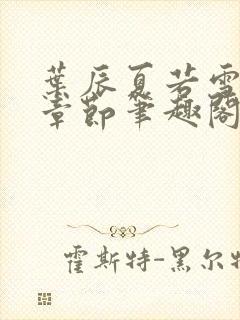 葉辰夏若雪
章節筆趣閣
霍斯特-黑尔特